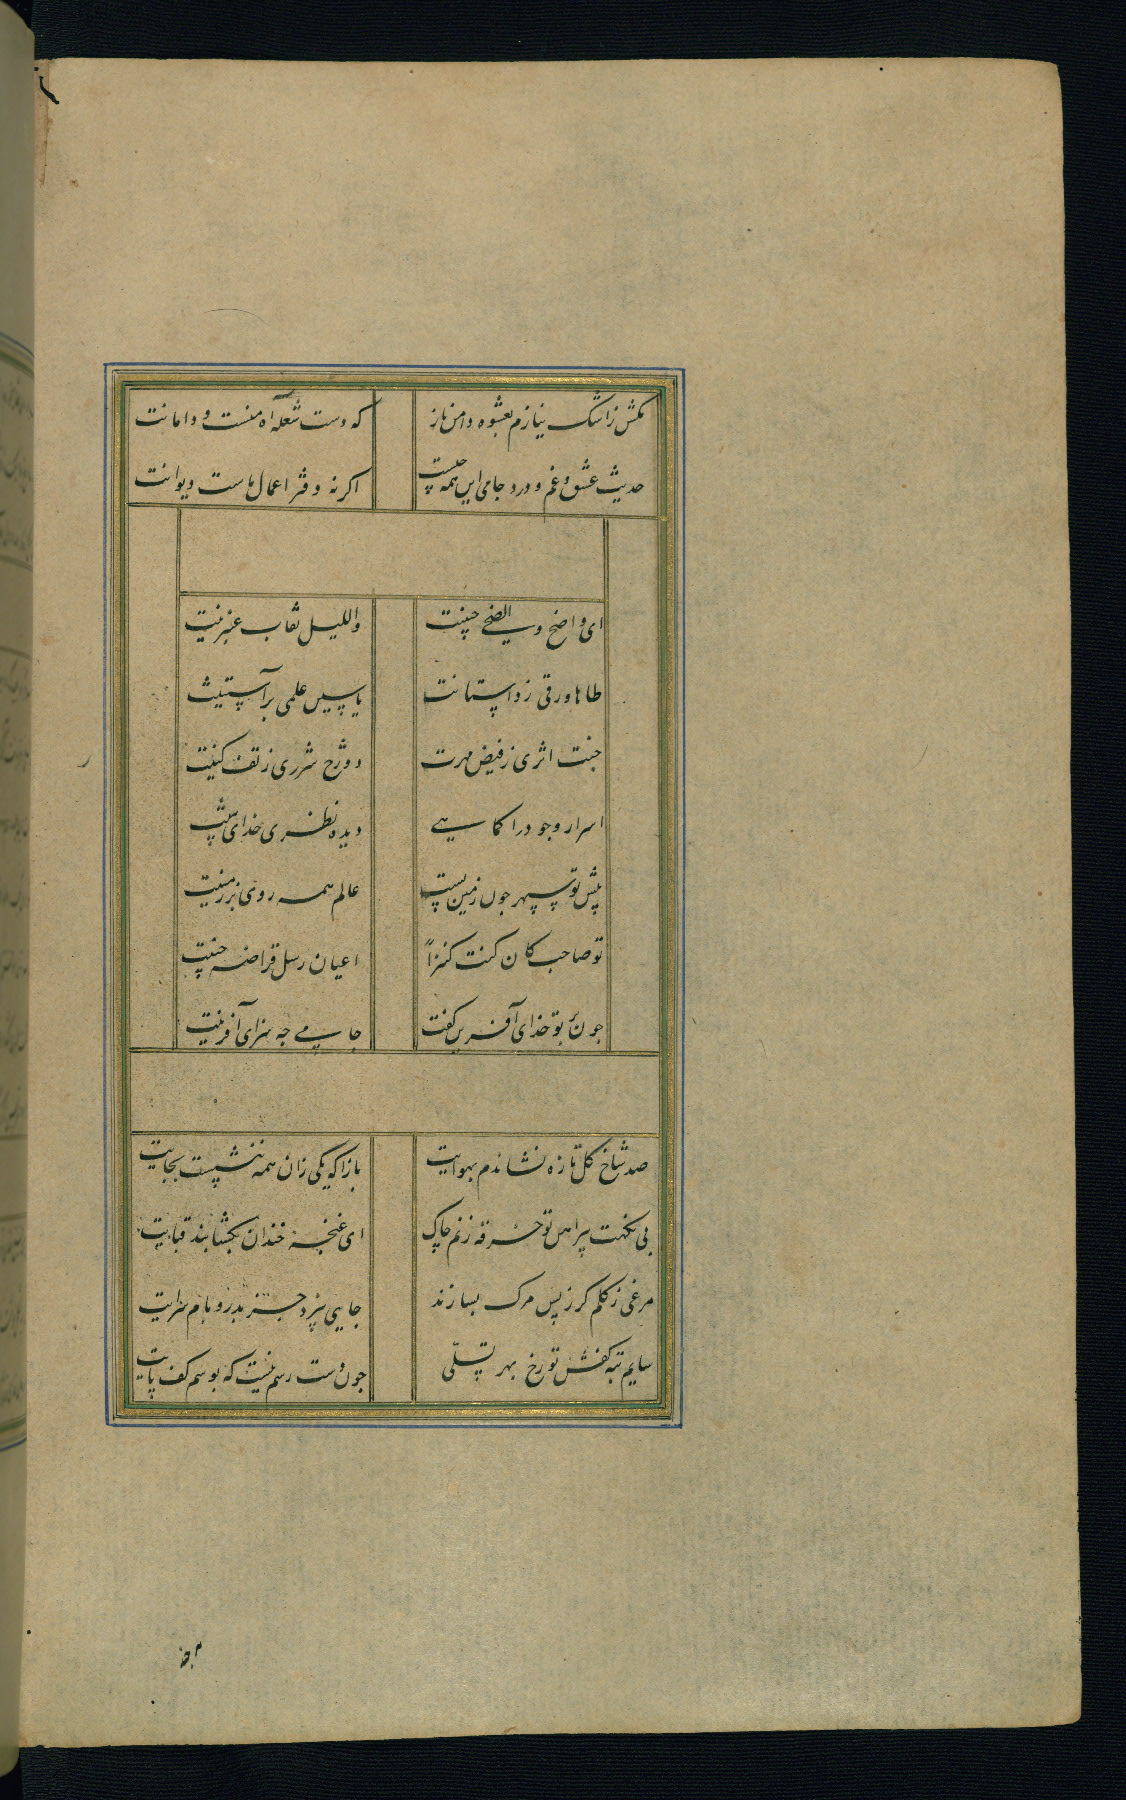 مکش ز اشک نیازم بعشوه دامن ناز
که دست شعله آه منست و دامانت
حدیث عشق و غم و درد جامی این همه چیست
اکر نه دفتر اعمال ماست دیوانت
ای واضح والضحی جبینت
واللیل نقاب عنبرینت
طاها ورقی ز داستانت
یاسین علمی بر آستینت
جنت اثری ز فیض مهرت
دوزخ شرری ز تف کینت
اسرار وجود را کماهی
دیده نظر خدای بینت
پیش تو سپهر چون زمین پست
عالم همه روی بر زمینت
تو صاحب کان کنت کنزاً
اعیان رسل قراضه چینت
چون بر تو خدای آفرین گفت
جامی چه سزای آفرینت
صد شاخ کل تازه نشاندم بهوایت
بازا که یکی زان همه ننشست بجایت
بی نکهت پیراهن تو خرقه زنم چاک
ای غنچه خندان بکشا بند قبایت
مرغی ز کلم کر ز پس مرک بسازند
جایی نپرد جز بدر و بام سرایت
سایم بته کفش تو رخ بهر تسلّی
چون دست رسم نیست که بوسم کف پایت